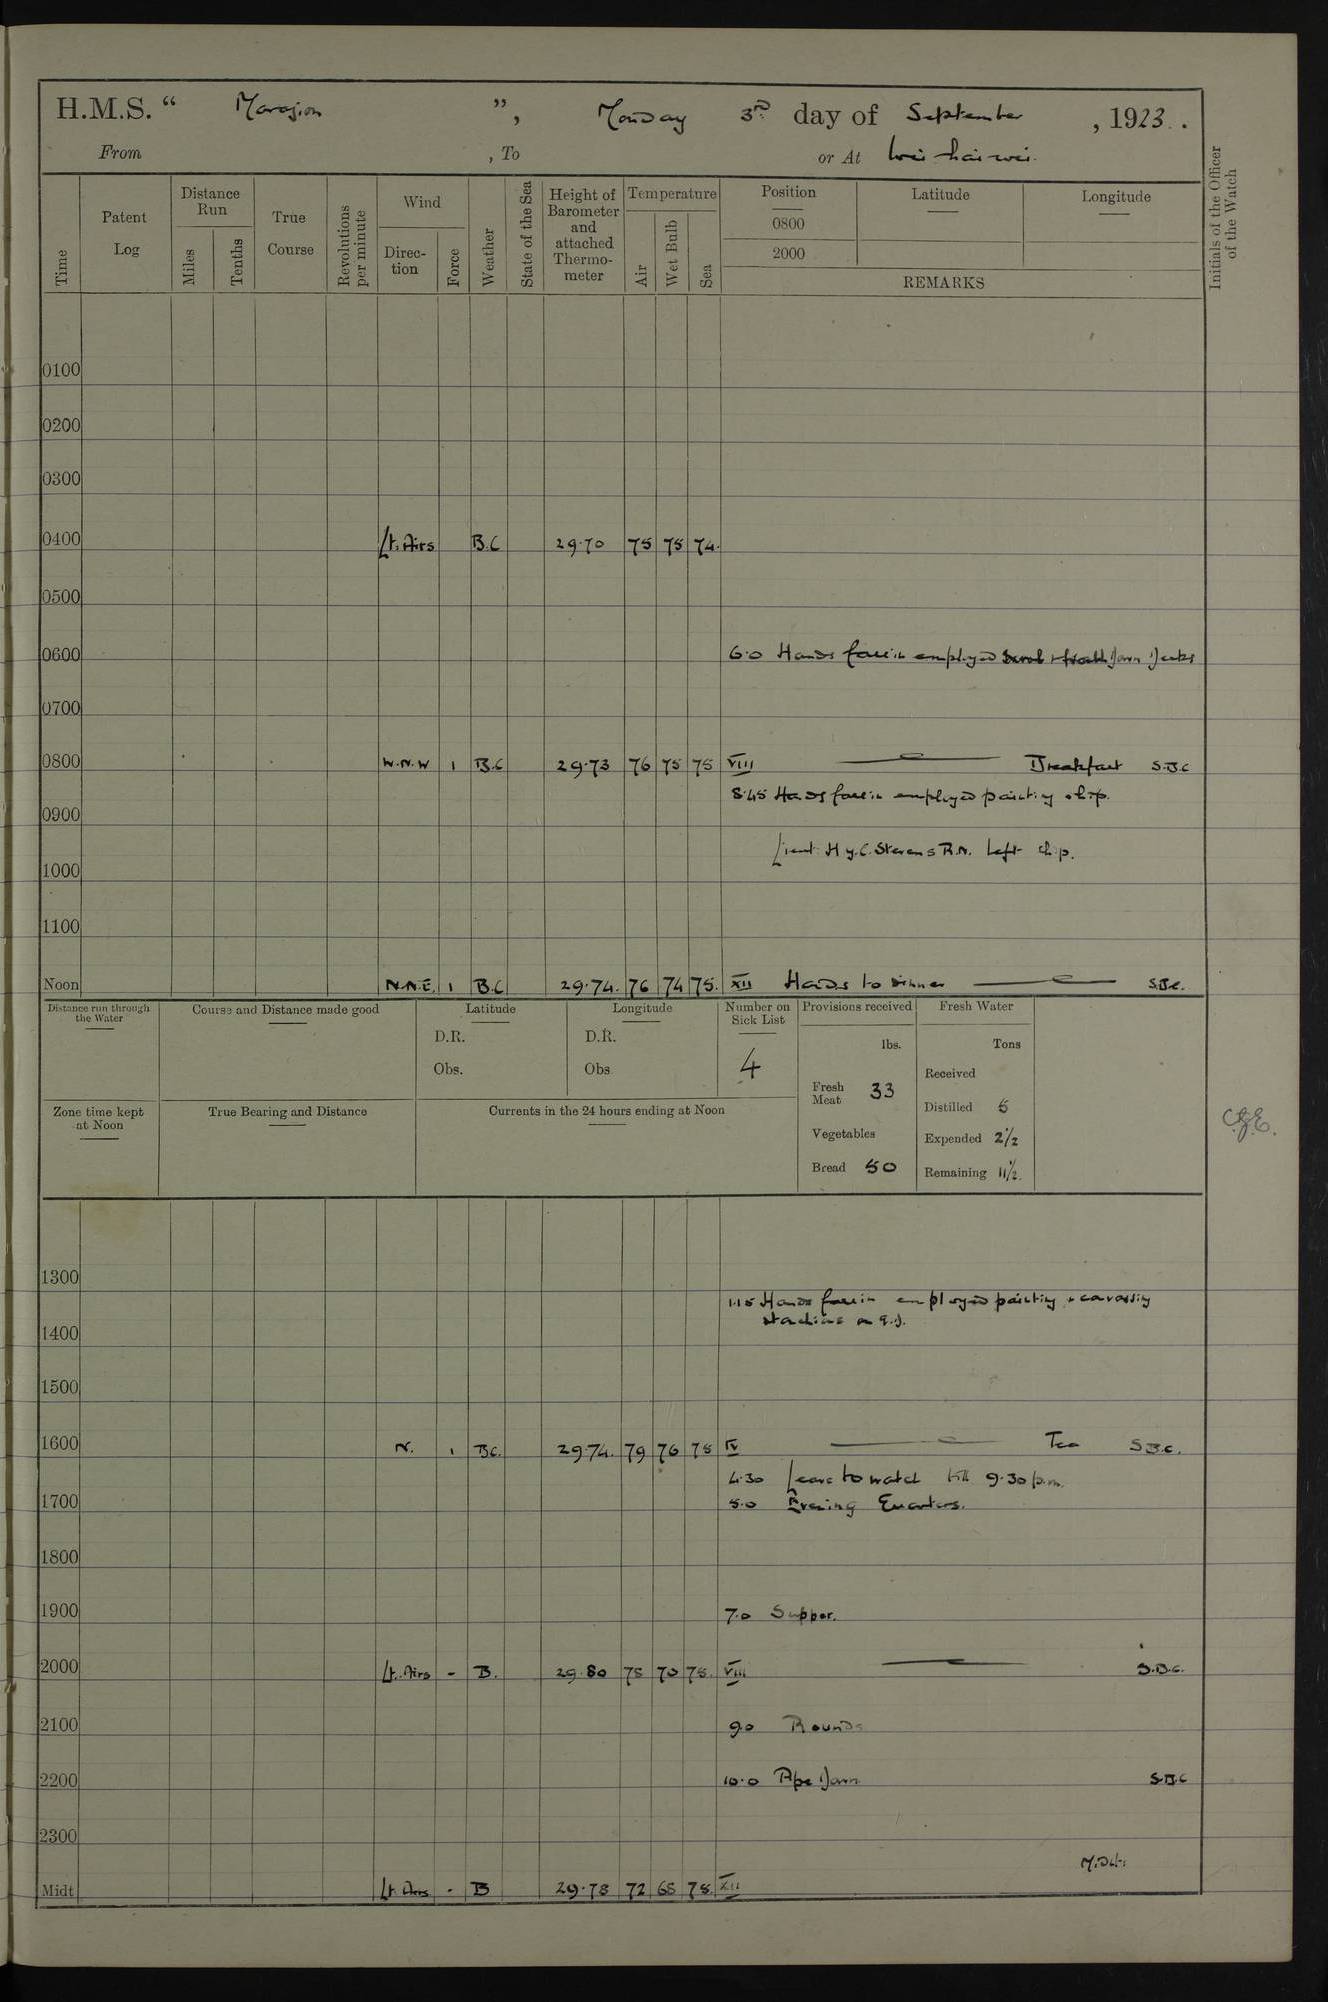 H.M.S. “ Marazion ”, Monday 3rd day of September, 1923.
From , To or At Wei-hai-wei.
Time
Patent Log
Distance Run
Miles
Tenths
True Course
Revolutions per minute
Wind
Direction
Force
Weather
State of the Sea
Height of Barometer and attached Thermometer
Temperature
Air
Wet Bulb
Sea
Position
0800
2000
Latitude
Longitude
REMARKS
Initials of the Officer of the Watch
0100
0200
0300
0400 Lt. Airs B.C 29.70 75 75 74.
0500
0600 6.0 Hands fall in employed down Decks
0700
0800 W.N.W 1 B.C 29.73 76 75 75 VIII Breakfast S.B.C
8.45 Hands fall in employed painting ship.
0900
Lieut. H.y.C. Stevens R.N. Left ship.
1000
1100
Noon N.N.E. 1 B.C 29.74. 76 74 75. XII Hands to dinner S.B.C.
Distance run through the Water
Course and Distance made good
Latitude
D.R.
Obs.
Longitude
D.R.
Obs
Number on Sick List
4
Provisions received
lbs.
Fresh Meat 33
Vegetables
Bread 50
Fresh Water
Tons
Received
Distilled 5
Expended 2½
Remaining 11½.
Zone time kept at Noon
True Bearing and Distance
Currents in the 24 hours ending at Noon
1300
1.15 Hands fall in employed painting &
1400
1500
1600 N. 1 BC. 29.74. 79 76 75 IV Tea S.B.C.
4.30 Leave to watch till 9.30 p.m.
1700 5.0 Evening Quarters.
1800
1900 7.0 Supper.
2000 Lt. Airs - B. 29.80 75 70 75. VIII S.B.C.
2100 9.0 Rounds
2200 10.0 Pipe Down S.B.C
2300
Midt Lt. Airs - B 29.78 72 68 75. XII